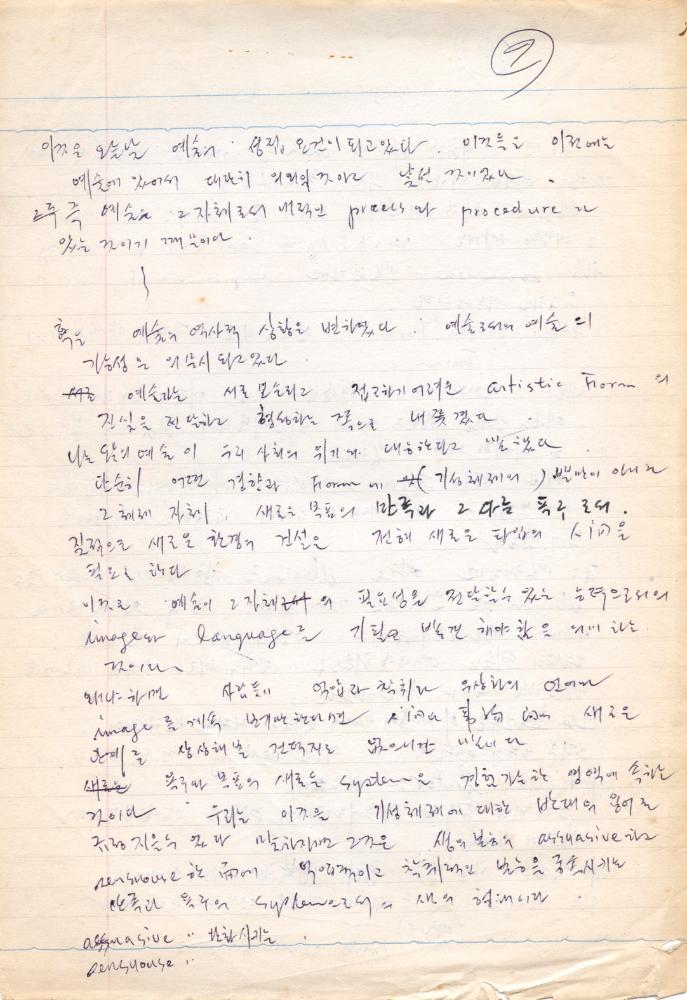 이것은 오늘날 예술의 성격, 요건이 되고 있다. 이것들은 이전에는
예술에 있어서 대단히 의외의 것이고 낯선 것이었다.
즉 예술은 그 자체로서 내적인 process와 procedure가
있는 것이기 때문이다.
혹은 예술의 역사적 상황은 변하였다. 예술로서의 예술의
가능성은 의문시 되고 있다.
예술은 서로 접근하기 어려운 artistic Form의
진실을 전달하고 형성하는 쪽으로 내쫓겼다.
나는 오늘의 예술이 우리 사회의 위기에 대응한다고 말했다.
단순히 어떤 결함과 Form에 (기성체제의) 뿐만이 아니라
그 체제 자체, 새로운 목표의 만족과 그 다음 욕구로서.
질적으로 새로운 환경의 건설은 전혀 새로운 타입의 人間을
필요로 한다.
이것은 예술이 그 자체의 필요성을 전달할 수 있는 능력으로서의
image와 language를 기필코 발견해야 함을 의미하는
것이다.
왜냐하면 사람들이 억압과 착취와 우상화의 언어와
image를 계속 한다면 人間과 事物 새로운
관계를 상상해 볼 건덕지도 없으니까 말이다.
새로운 욕구와 목표의 새로운 system은 경험 가능한 영역에 속하는
것이다. 우리는 이것을 기성체제에 대한 반대의 용어로
규정 지을 수 있다. 말하자면 그것은 생의 본능의 assuasive하고
sensuouse한 억압적이고 착취적인 본능을 종속시키는
만족과 욕구의 system으로서의 새 형태이다.
assuasive :
sensuouse :